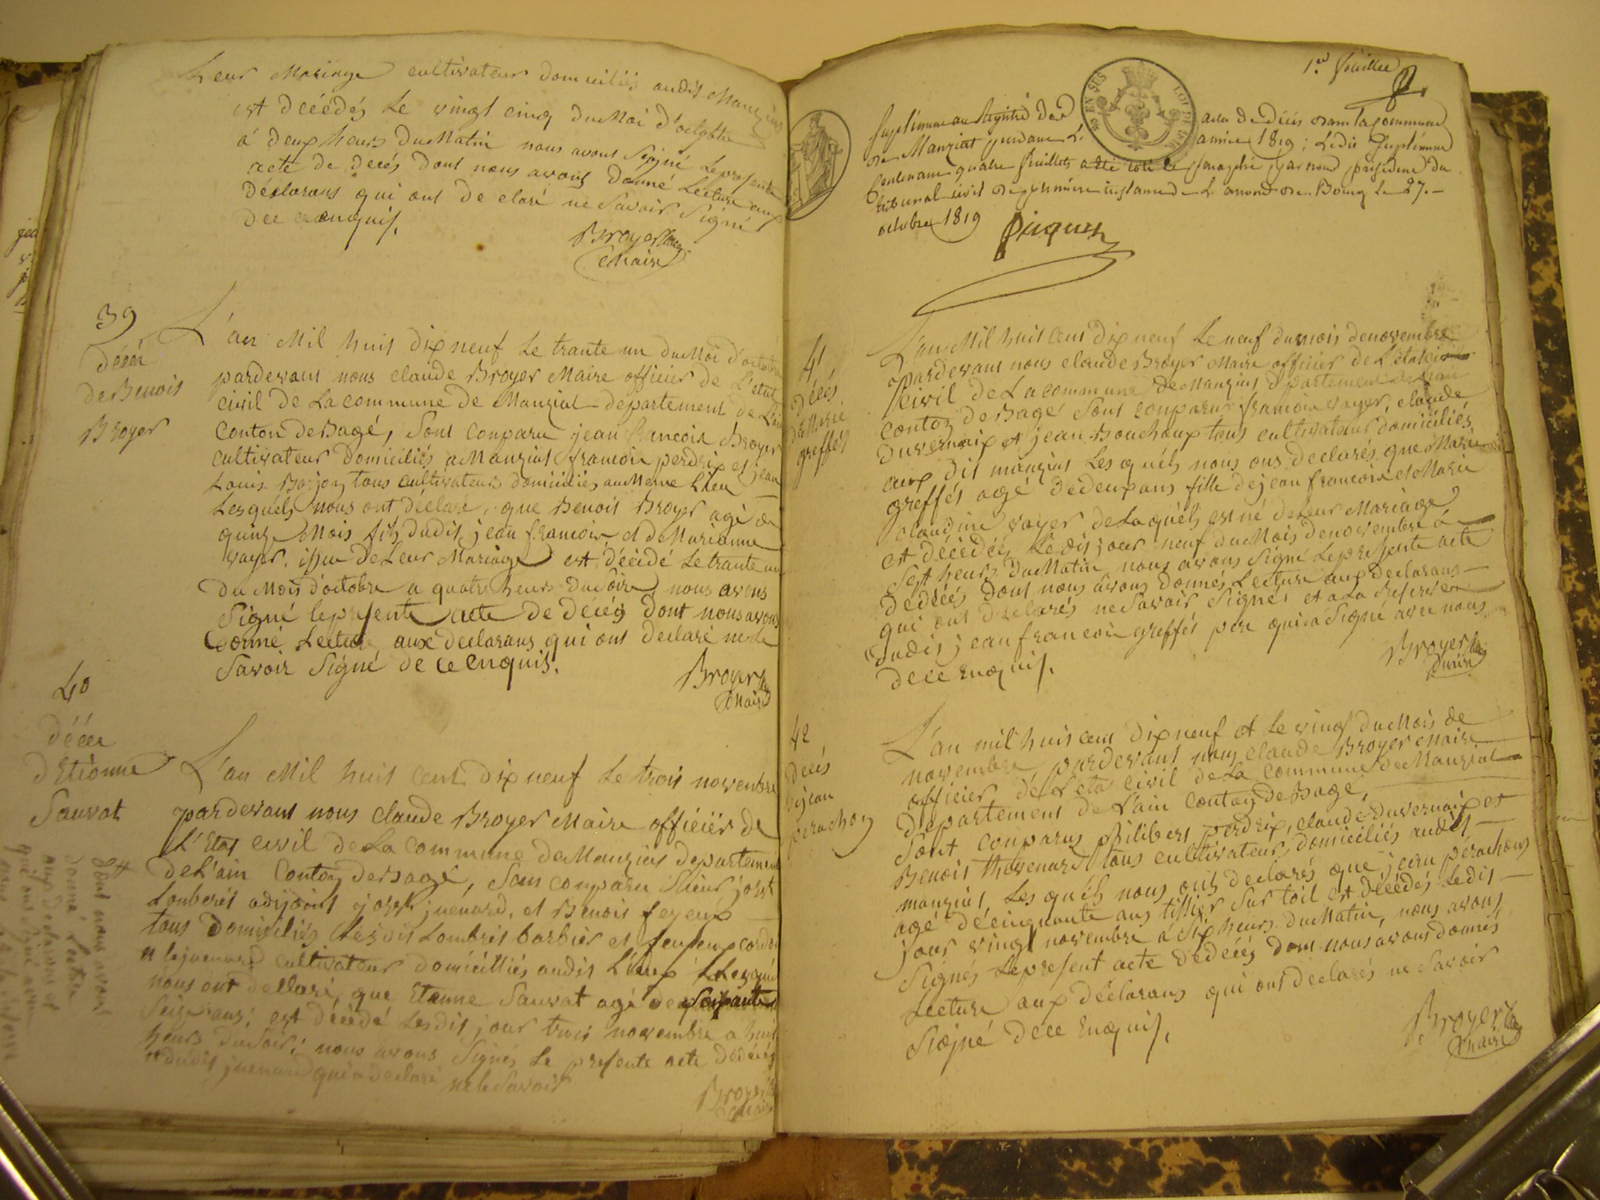 Leur Mariage cultivateur domiciliés audit Manziat
est décédés Le vingt cinq du Moi d'octobre
á deux heurs du Matin nous avons signé Le presente
acte de decés dont nous avons donné Lecture aux
déclarans qui ont de claré ne Savoir Signé
de ce enquis.
Broyer
Maire
39
décès
de Benois
Broyer
L'an Mil huit dix neuf Le trante un du Moi d'octobre
pardevant nous claude Broyer Maire officier de L'etat
civil de La commune de Manziat departement de L'ain
Conton de Bagé, Sont conparu jean francois Broyer
cultivateur domiciliés a Manziat francois perdrix et jean
Louis Bojon tous cultivateurs domiciliés au Meme Lieu
Lesquels nous ont déclaré, que Benois Broyer agé de
quinze Mois fils dudit jean francois et de Marianne
vayer, issu de Leur Mariage est décidé Le trante un
du Mois d'octobre a quatre heurs du Soire, nous avons
Signé le presente acte de décés dont nous avons
donné Lecture aux declarans qui ont declaré ne Le
Savoir Signé de ce enquis.
Broyer
Maire
40
décés
d'Etienne
Sauvat
L'an Mil huit cent dix neuf Le trois novembre
pardevant nous claude Broyer Maire officiér de
L'Etat civil de La commune de Manziat departement
de L'ain Conton de Bagé, Sont conparu
adjoint joseph juenard, et Benois feyeux
tous domiciliés
le juenard cultivateur domicilliés audit Lieux Lesquels
nous ont declaré, que Etienne Sauvat agé de Soixante
Seize ans; est decédé Ledit jour trois novembre a huit
heurs du Soir; nous avons Signés Le presente acte de décés
dudit juenard qui a declaré ne le Savoir
Broyer
Maire
dont nous avons
donné Lecture
aux declarans et
qui ont signé avec
1er feuillet
Suplément au Registre des actes de Décès dans la commune
de Manziat pendant L'année 1819; Ledit Suplément
Contenant quatre feuillets a été coté et paraphé par nous président du
Tribunal civil de première instance de L'arrond. de Bourg Le 27
octobre 1819
41
décés
de Marie
greffés
L'an Mil huit cens dix neuf Le neuf du mois de novembre
pardevant nous claude Broyer Maire officier de L'état
civil de La commune de Manziat departement de L'ain
conton de Bagé Sont conparus francois vayer, claude
duvernaix et jean Bouchoux tous cultivateur domiciliés
aux dit manziat Lesquels nous ons declarés que Marie
greffés agé de deux ans fille de jean francois et Marie
claudine vayer de Laquels est né de Leur Mariage
et décédés Le dis jour neuf du Mois de novembre á
Sept heurs du Matin, nous avons Signé Le presente acte
de décés dont nous avons donnés Lecture aux declarans
qui ont déclarés ne Savoir Signé, et a La Reserve
dudis jean francois greffés pere qui a Signé avec nous
de ce Enquis.
Broyer
Maire
42
décés
de jean
perachon
L'an mil huit cent dix neuf et Le vingt du Mois de
novembre pardevant nous claude Broyer Maire
officier de L'eta civil de La commune de Manziat
departement de L'ain Conton de Bagé,
Sont conparus philibert perdrix, claude duvernaix et
Benois thevenard tous cultivateur domiciliés audit
manziat, Lesquels nous ons declarés que jean perachons
agé de cinquante ans tissier sur toil est décédés Ledit
jour vingt novembre á Six heurs du Matin, nous avons
Signés Le present acte de décés dont nous avons donnés
Lecture aux déclarans qui ont declarés ne Savoir
Signé de ce Enquis.
Broyer
Maire